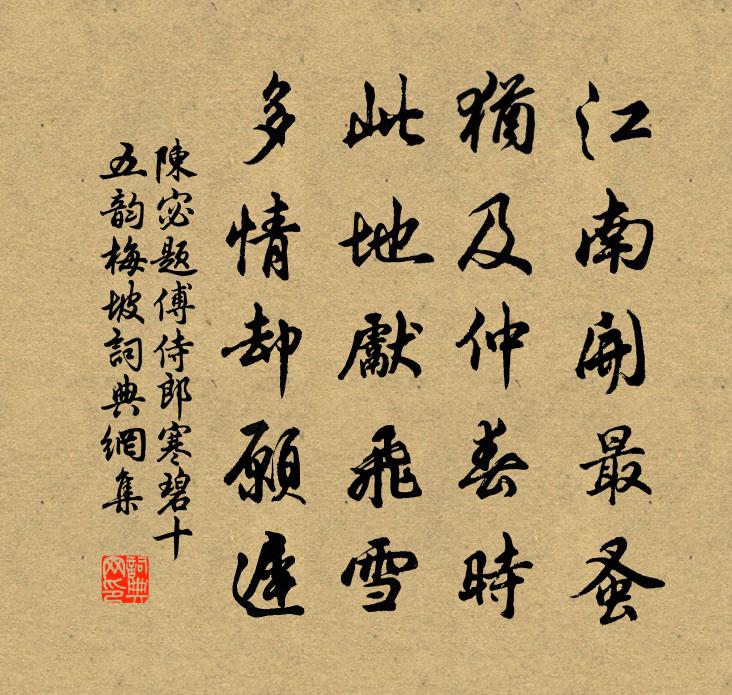 江南開最蚤
猶及仲春時
此地獻飛雪
多情却願遲
陳宓題傅侍郎寒碧十
五韵梅坡詞典網集
詞典
网印